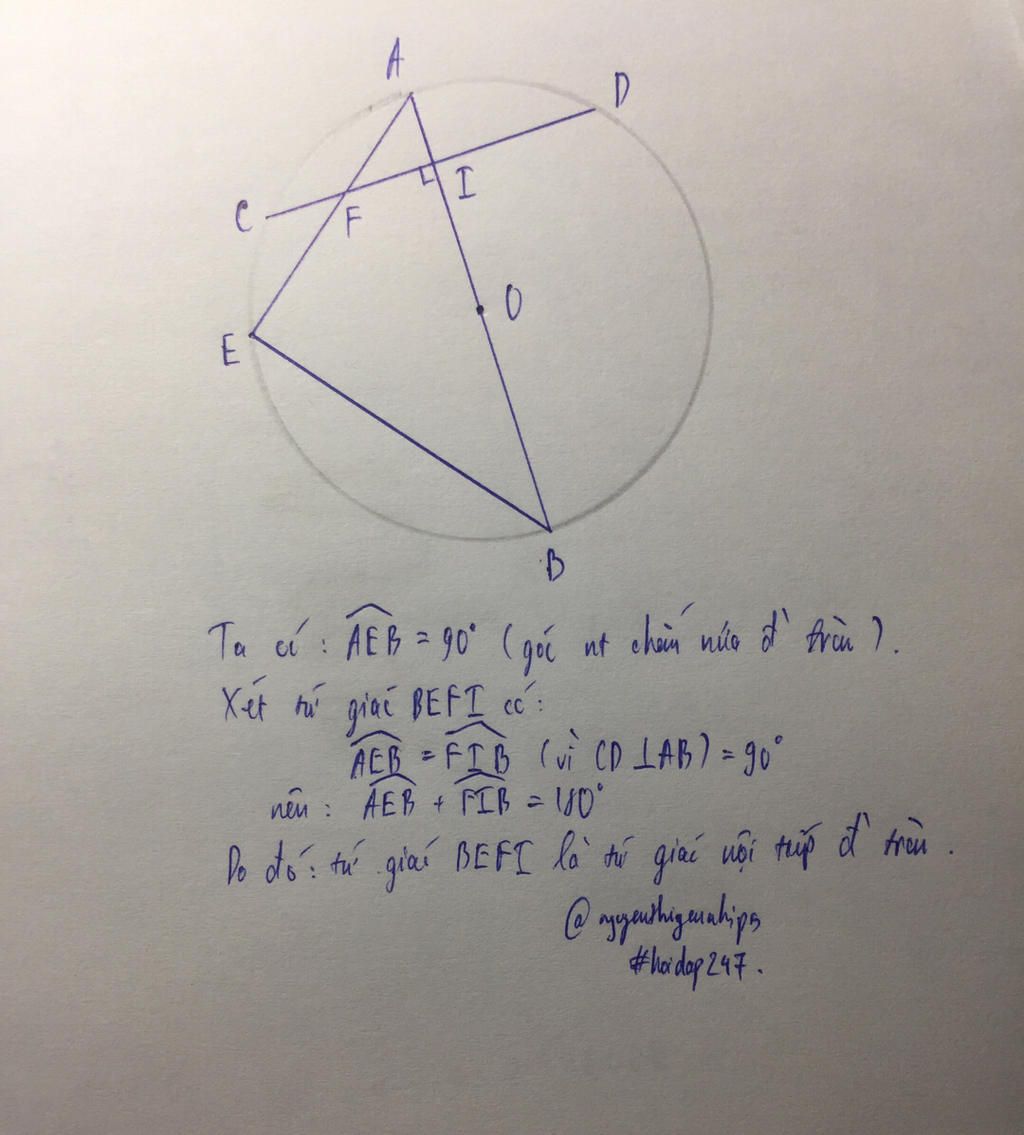 A
D
C
I
F
O
E
B
Ta có : AEB = 90° (góc nt chắn nửa đ' tròn ).
Xét tứ giác BEFI có :
AEB = FIB (vì CD ⊥ AB) = 90°
nên : AEB + FIB = 180°
Do đó : tứ giác BEFI là tứ giác nội tiếp đ' tròn .
#hoidap247.